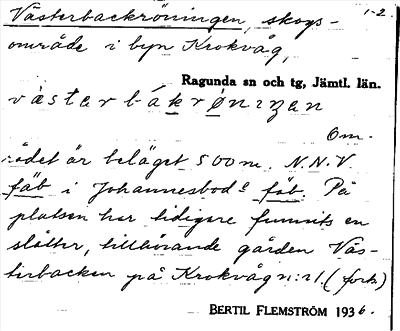 Västerbackröningen, skogs- 1-2.
område i byn Krokvåg,
Ragunda sn och tg, Jämtl. län.
västerbákrǿnıŋen
Om-
rådet är beläget 500 m. N.N.V.
fäb i Johannesbod<sup>s</sup> fäb. På
platsen har tidigare funnits en
slåtter, tillhörande gården Väs-
terbacken på Krokvåg n:r 1. (forts.)
BERTIL FLEMSTRÖM 1936.